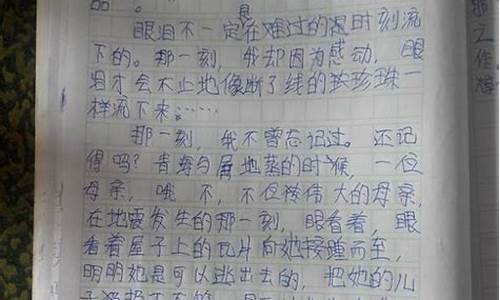 品。
眼泪不一定在难过的是时刻流
下的。那一刻，我却因为感动，眼
泪才会不止地像断了线的珍珠一
样流下来……
那一刻，我不曾忘记过。还记
得吗？青海 地 的时候，一位
母亲，哦 不，不 伟大的母亲，
在地震发生的那一刻，眼看着，眼
看着屋子上的瓦片向她接踵而至，
明明她是可以逃出去的，把她的儿
作。